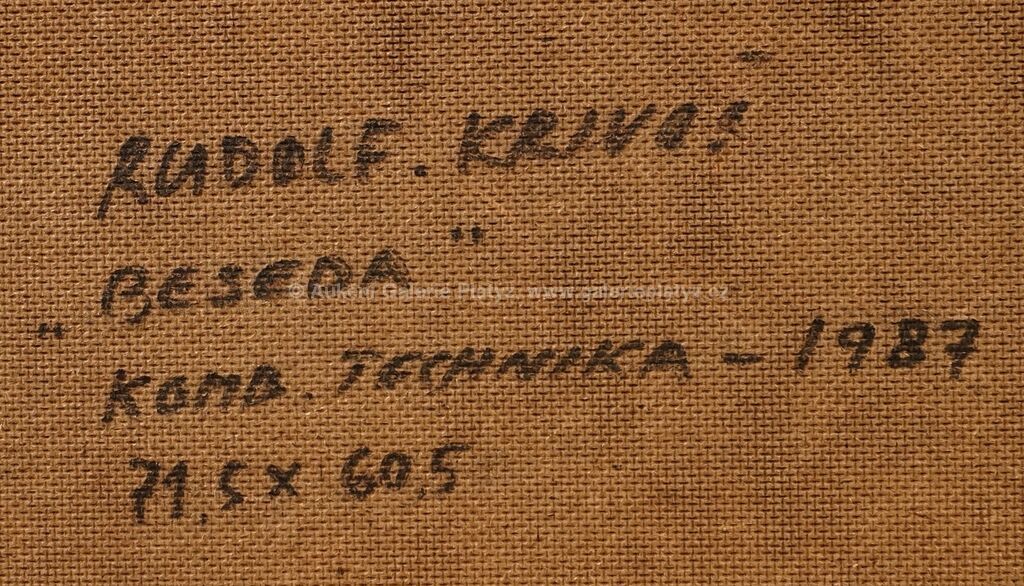 RUDOLF. KRIVOŠ
„BESEDA"
KOMB. TECHNIKA – 1987
71,5 x 60,5
© Aukční Galerie Platýz, www.galerieplatyz.cz